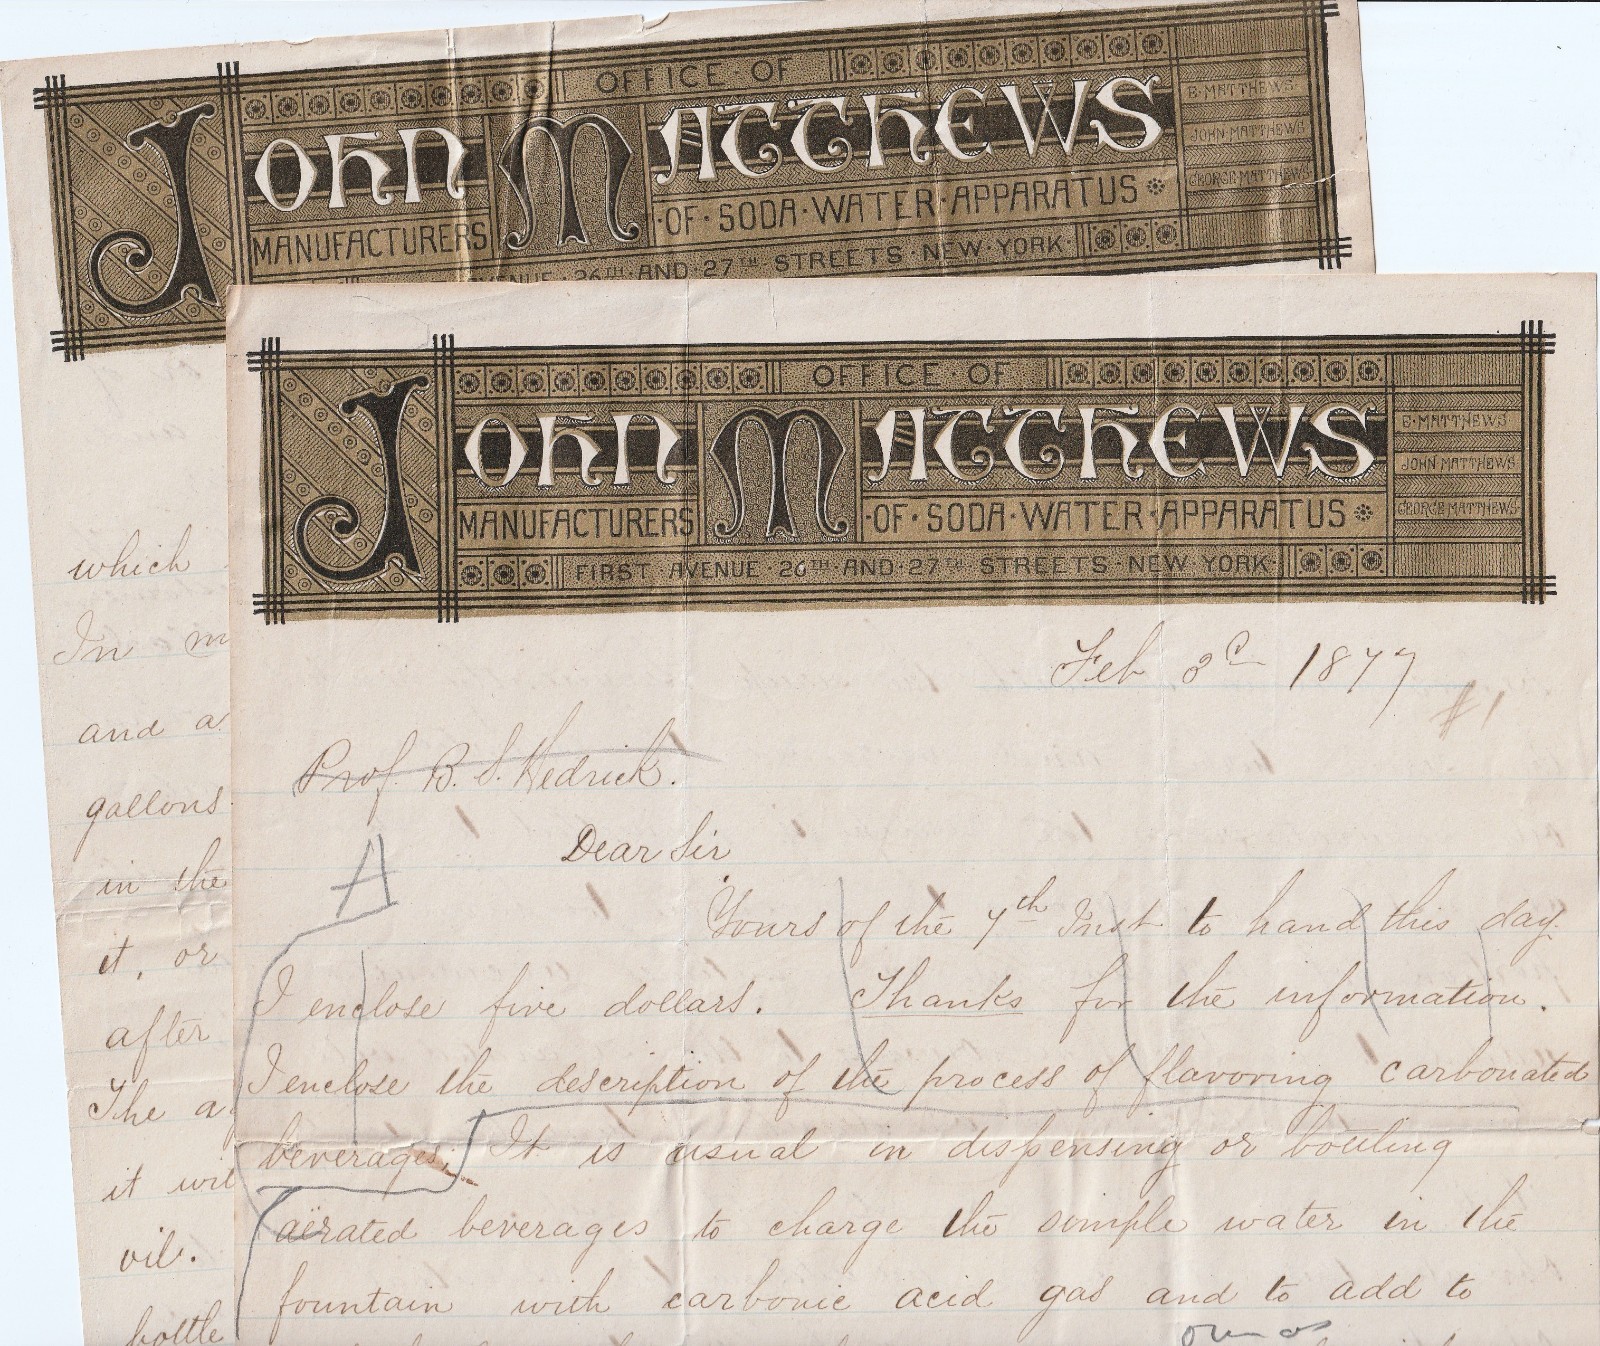 OFFICE · OF
JOHN MATTHEWS
MANUFACTURERS · OF · SODA · WATER · APPARATUS
AVENUE · 26TH · AND · 27TH STREETS · NEW · YORK ·
B · MATTHEWS
JOHN · MATTHEWS
GEORGE MATTHEWS
which
In
and a
gallons
in the
it, or
after
The a
it wil
oil.
bottle
OFFICE · OF
JOHN MATTHEWS
MANUFACTURERS · OF · SODA · WATER · APPARATUS
FIRST AVENUE · 26TH AND · 27TH STREETS · NEW YORK
B · MATTHEWS
JOHN MATTHEWS
GEORGE MATTHEWS
Feb 1877
#1
Prof. B. S. Hedrick.
A
Dear Sir
Yours of the 7th Inst to hand this day.
I enclose five dollars. Thanks for the information.
I enclose the description of the process of flavoring carbonated
beverages; It is usual in dispensing or bottling
aërated beverages to charge the simple water in the
fountain with carbonic acid gas and to add to